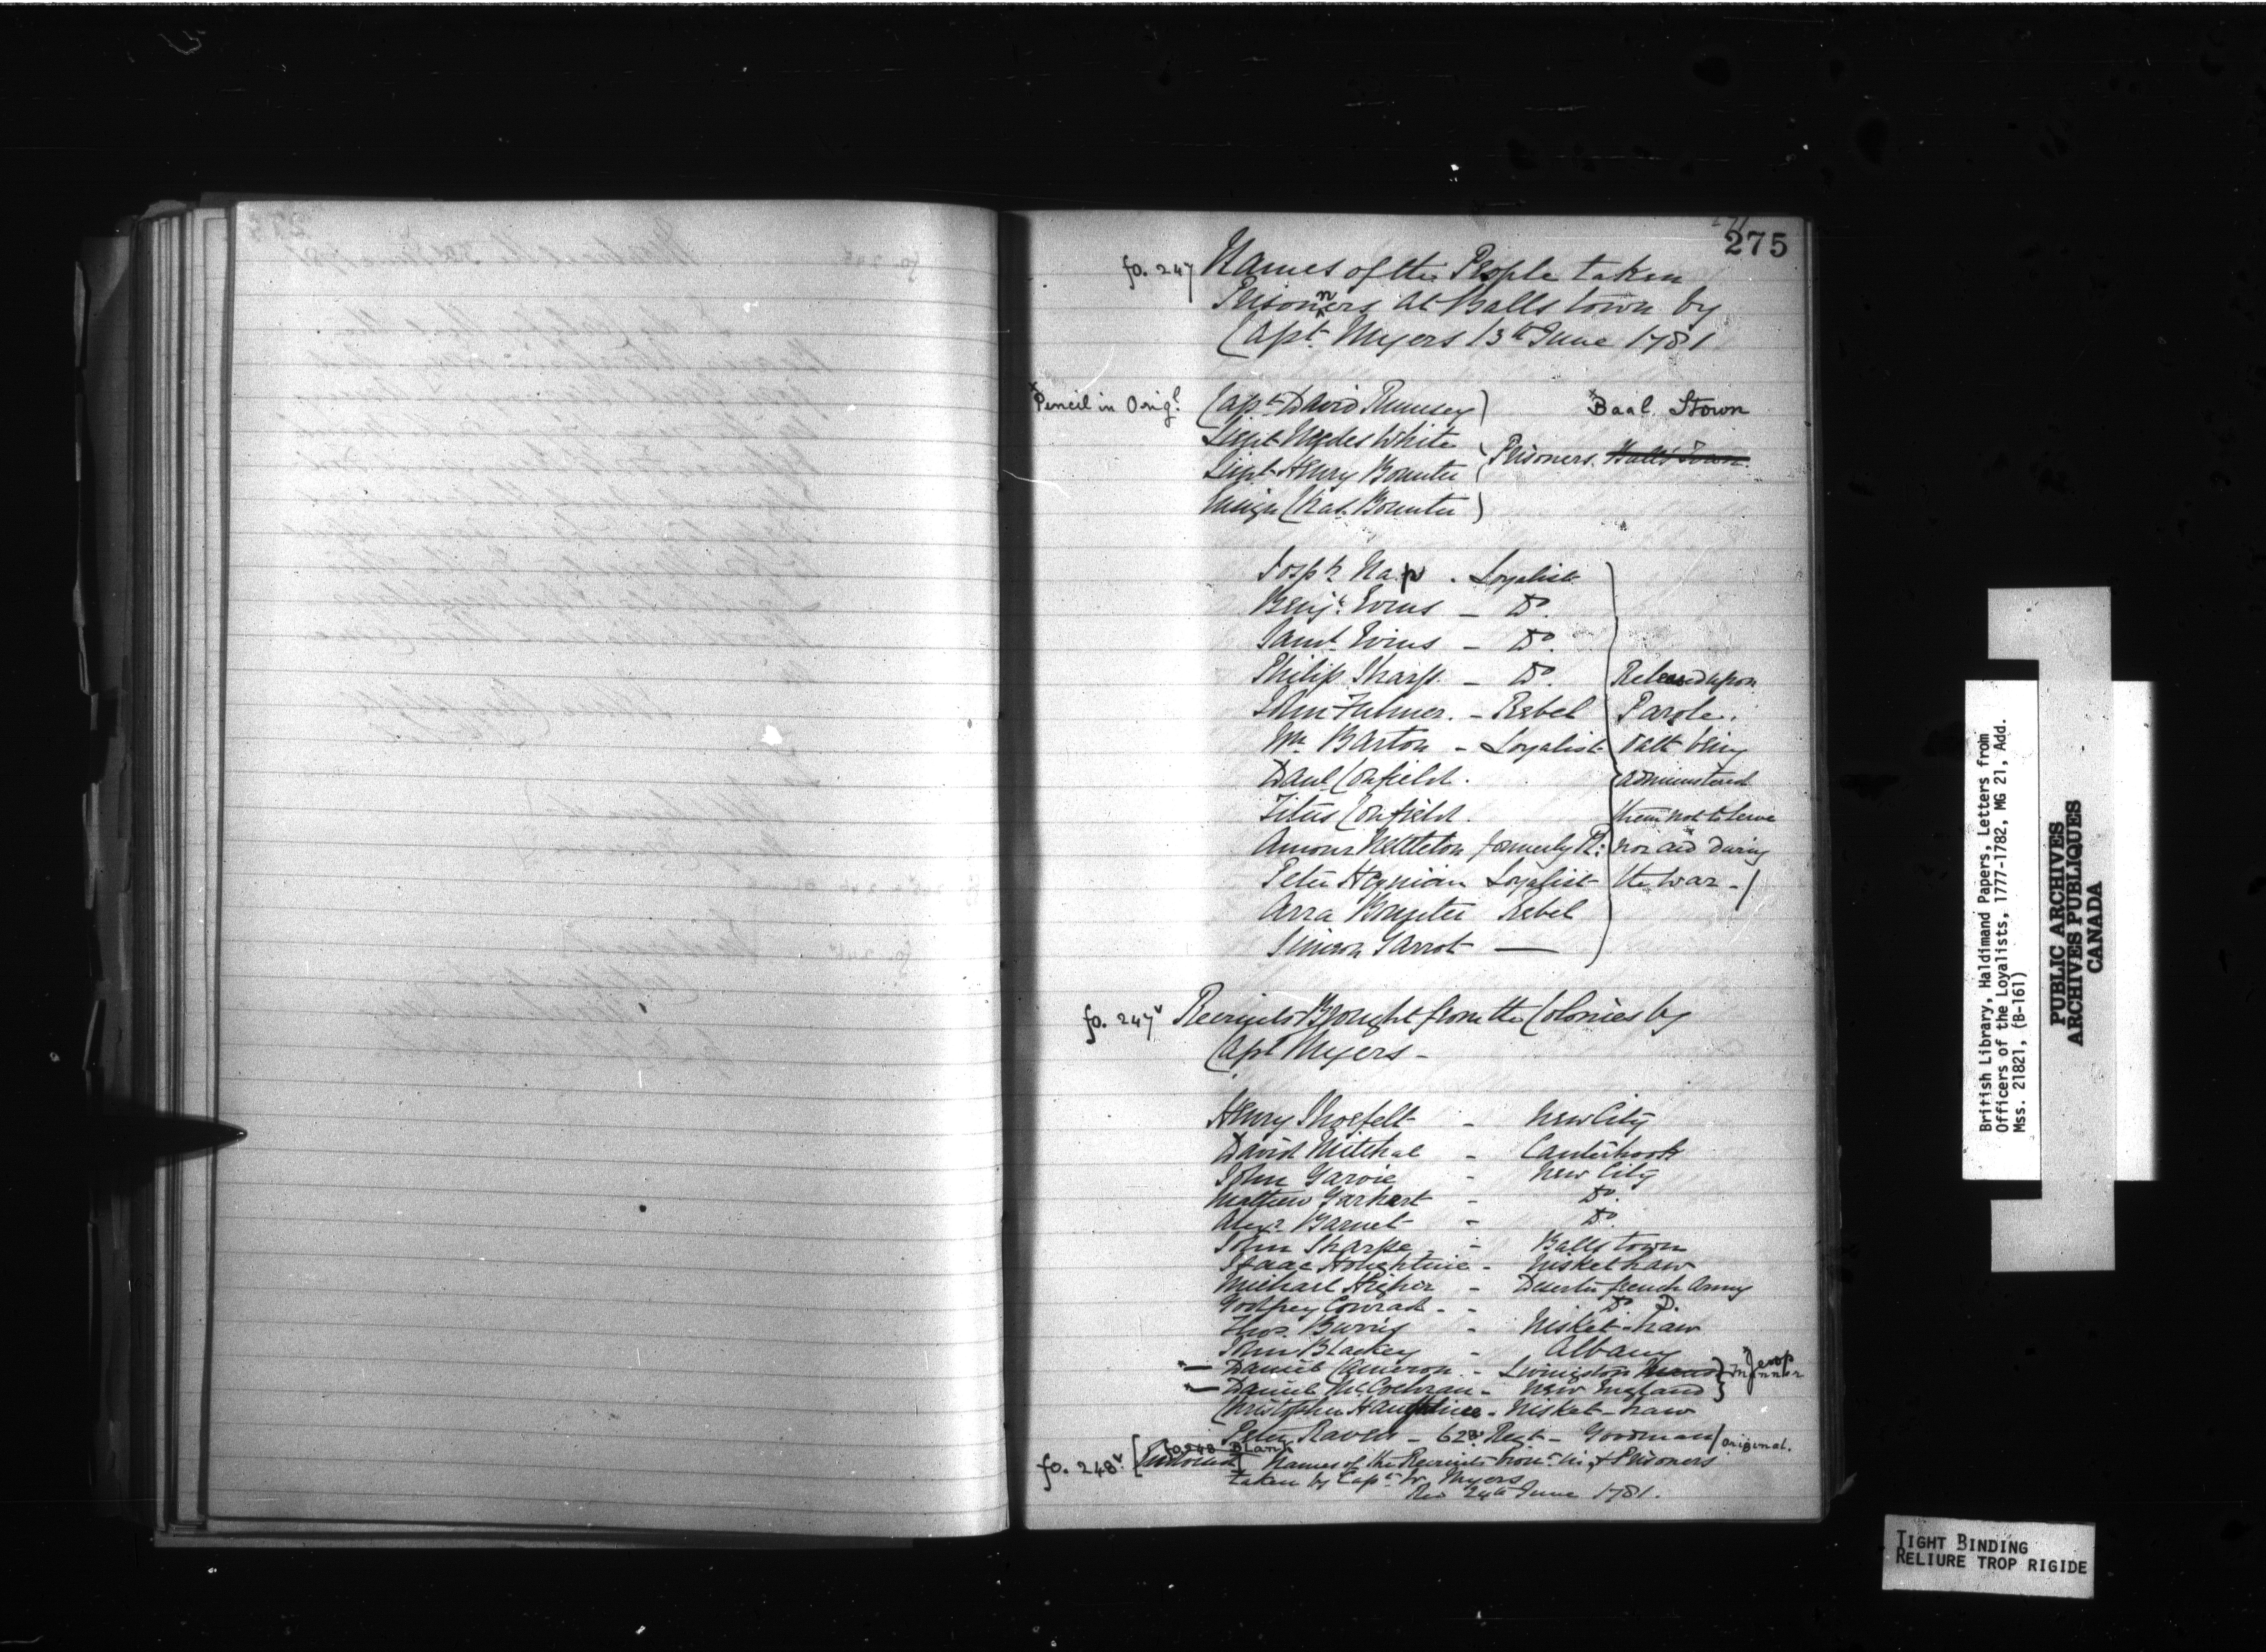 275
fo. 247 Names of the People taken
Prisonners at Balls town by
Capt. Myers 13th June 1781
x Pencil in Origl.
Capt. David Rumsey
x Baal Stown
Lieut White
Prisoners. Balls Town.
Lieut Henry Bounter
Ensign Chas. Bounter
Josph Nap. Loyalist
Benj. Evins - Do.
Saml. Evins - Do.
Philip Sharp. - Do.
John Fulmer. - Rebel
Mr. Barton - Loyalist
Danl. Confield.
Titus Confield.
Amour Nettleton formerly R:
Peter Hegnian Loyalist
Arra Bounter Rebel
Simeon Garrot —
Released upon
Parole.
Oath being
administered
them not to serve
nor aid during
the war -/
fo. 247v Recruits Brought from the Colonies by
Capt Myers -
Henry Shoefelt - New City
David Mitchal - Canterhook
John Garvie - New City
Mathew Garhart - Do.
Alexr. Barnet - Do.
John Sharpe - Balls town
Isaac Houghtine - Niskethaw
Michael Higher - Deserter french Army
Godfrey Conrad - Do. D.
Thos. Burris - Nisket-haw
John Blackey - Albany
Daniel Cameron - Livingston Manor
Manner
x Jesop
Daniel McCochran - New England
Christopher Haughtine - Nisket-haw
Peter Raven - 62d Regt - Goodman / original.
fo. 248 Blank
fo. 248v. [Endorsed] Names of the Recruits brot. in, & Prisoners
taken by Capt. W. Myers
Rec 24th June 1781.
British Library, Haldimand Papers, Letters from
Officers of the Loyalists, 1777-1782, MG 21, Add.
Mss. 21821, (B-161)
PUBLIC ARCHIVES
ARCHIVES PUBLIQUES
CANADA
TIGHT BINDING
RELIURE TROP RIGIDE